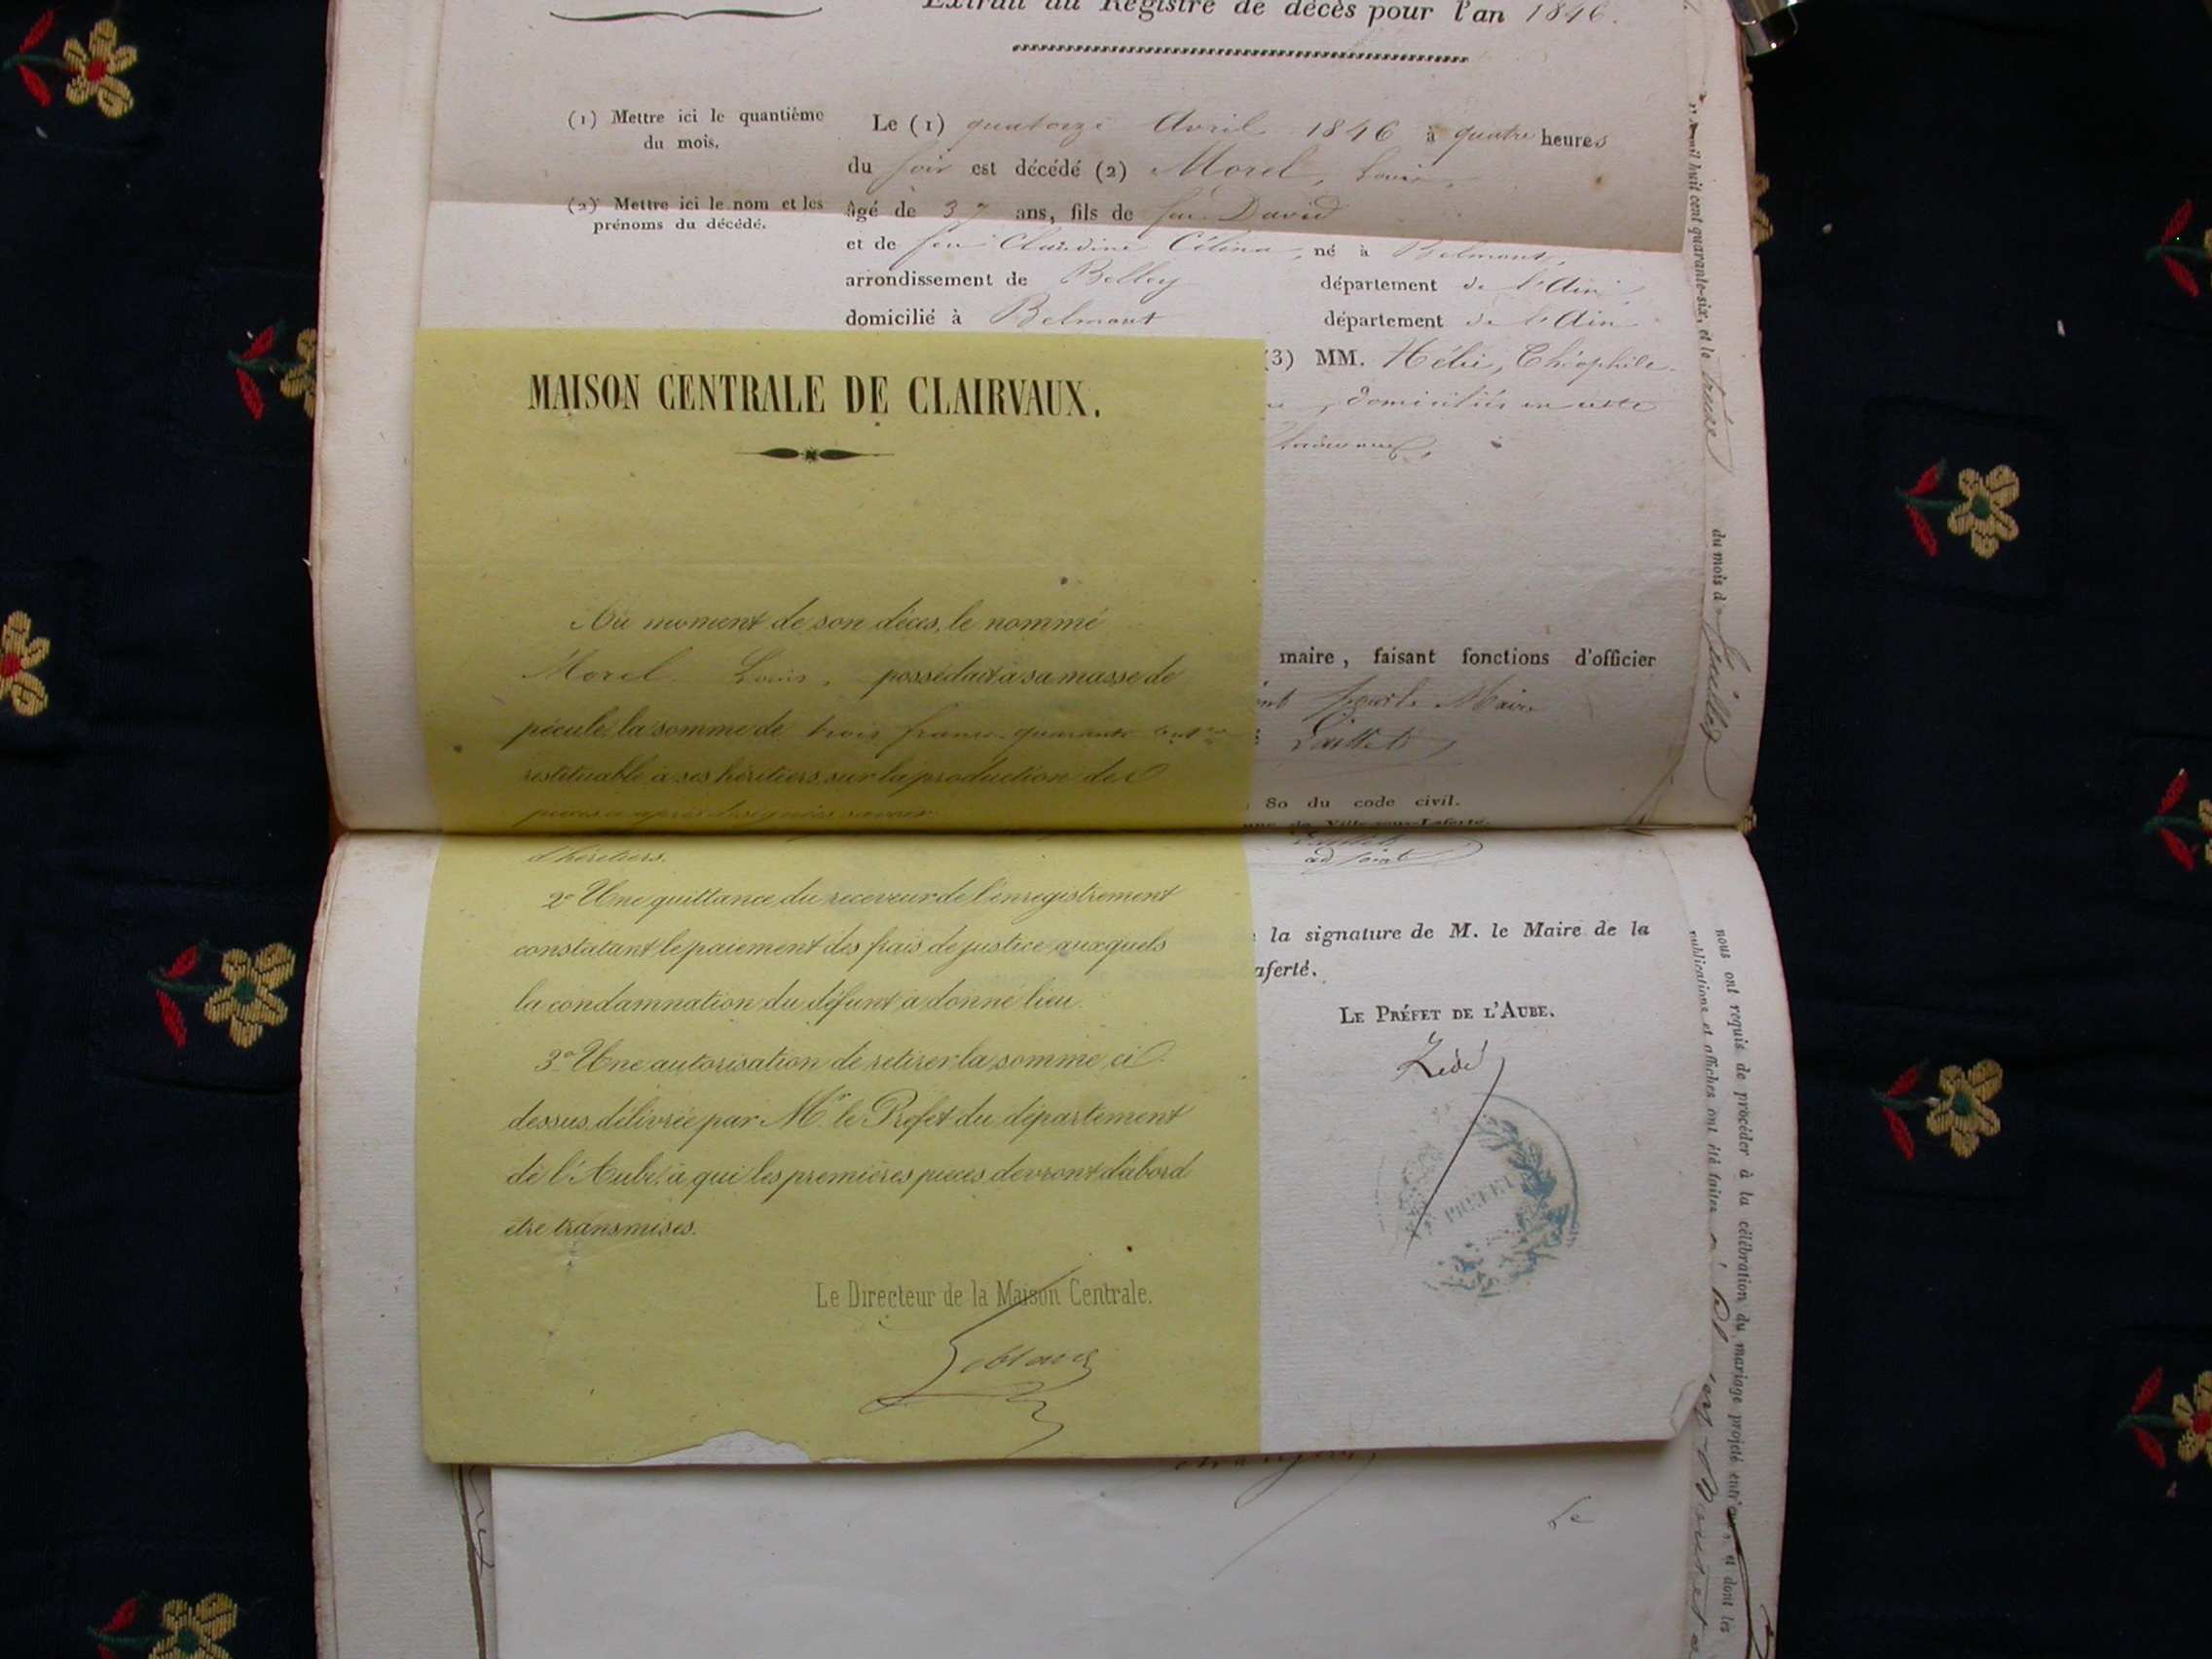 Extrait du Registre de décès pour l'an 1846.
(1) Mettre ici le quantième
du mois.
(2) Mettre ici le nom et les
prénoms du décédé.
Le (1) quatorze Avril 1846 à quatre heures
du soir est décédé (2) Morel, Louis,
âgé de 37 ans, fils de feu David
et de feu Claudine Célina, né à Belmont,
arrondissement de Belley département de l'Ain,
domicilié à Belmont département de l'Ain
(3) MM. Théophile
domiciliés en cette
maire, faisant fonctions d'officier
pour le Maire
80 du code civil.
de Ville-sous-Laferté.
adjoint
la signature de M. le Maire de la
aferté.
LE PRÉFET DE L'AUBE.
Zédé
MAISON CENTRALE DE CLAIRVAUX.
Au moment de son décès, le nommé
Morel Louis, possédait à sa masse de
pécule, la somme de trois francs quarante
restituable à ses héritiers sur la production des
pièces ci-après désignées savoir:
d'héritiers.
2º Une quittance du receveur de l'enregistrement
constatant le paiement des frais de justice auxquels
la condamnation du défunt a donné lieu.
3º Une autorisation de retirer la somme ci
dessus, délivrée par Mr. le Préfet du département
de l'Aube, à qui les premières pièces devront d'abord
être transmises.
Le Directeur de la Maison Centrale.
Leblanc
mil huit cent quarante-six, et le treize
du mois d
nous ont requis de procéder à la célébration du mariage projeté entr'eux, et dont les
publications et affiches ont été faites